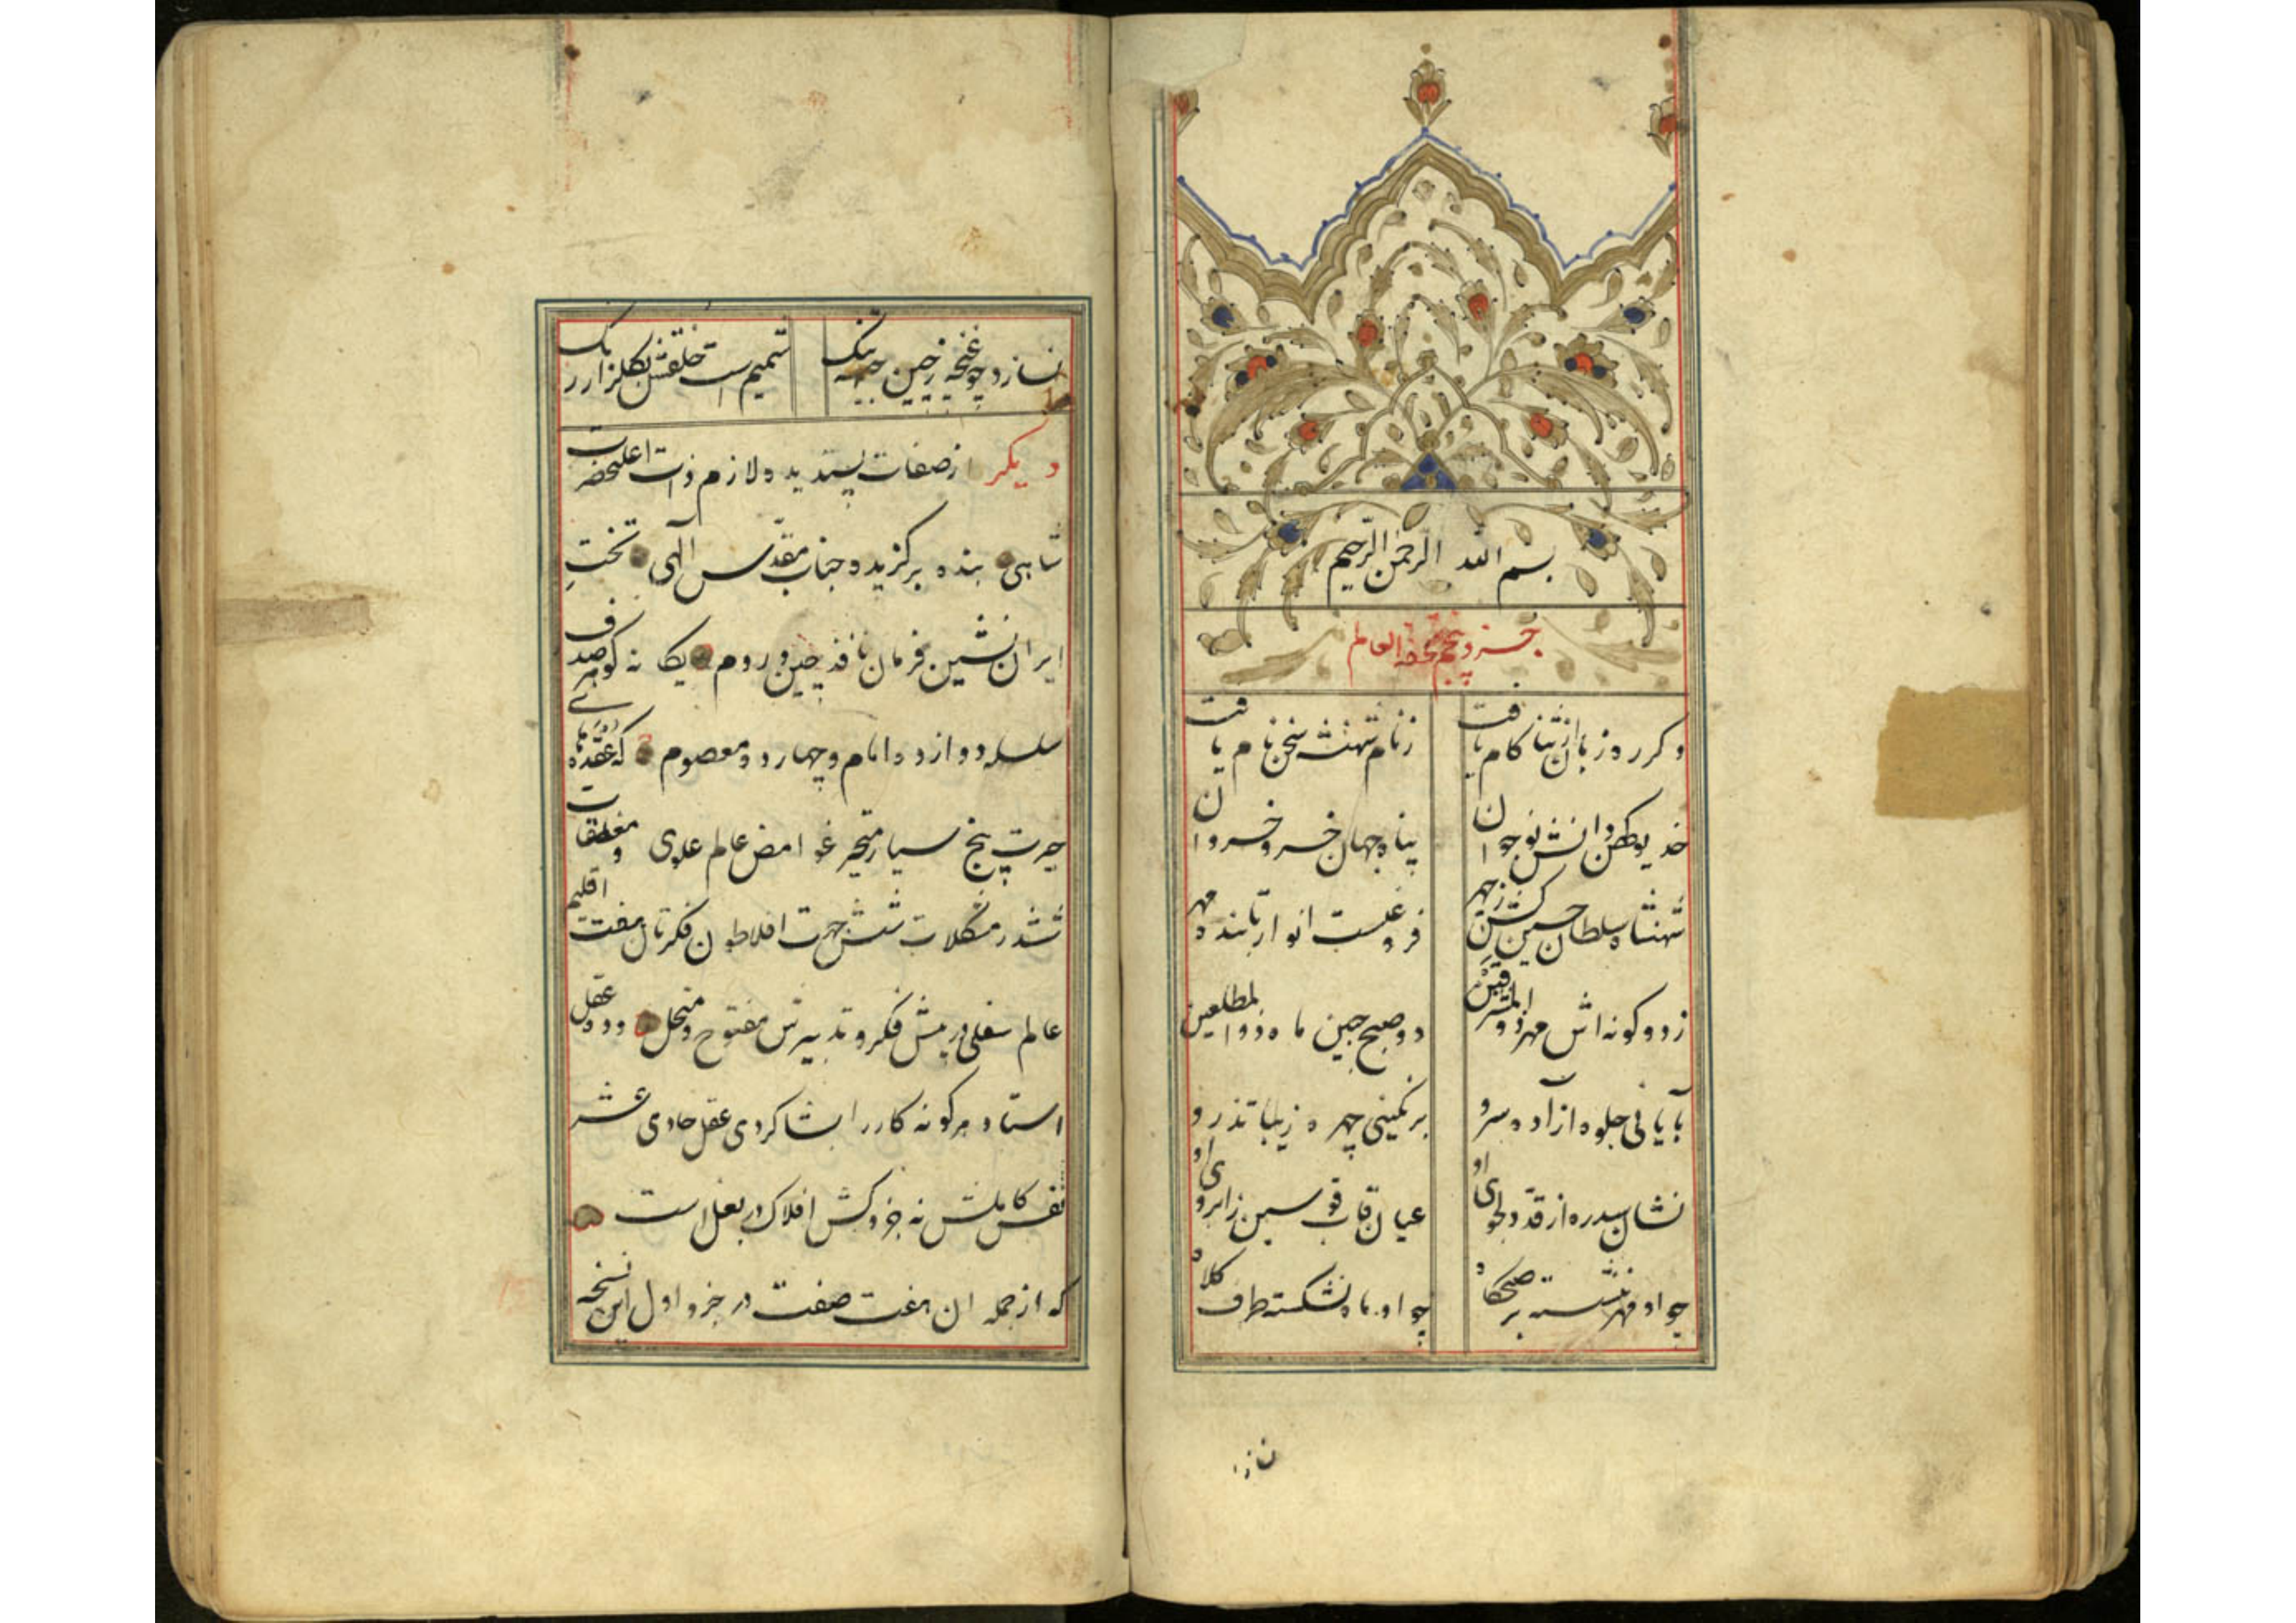 بسم الله الرحمن الرحیم
جزو پنجم تحفة العالم
دکر روز بان از ثنا کام یافت
ز نام شهنشه سخن نام یافت
خدیو کهن دانش نوجوان
پناه جهان خسرو خسروان
شهنشاه سلطان حسین کش ز چهر
فروغیست انوار تابنده مهر
ز دو کونه اش مهر ذو المشرقین
دو صبح جبین ماه ذوالمطلعین
با یانی جلوه آزاده سرو
برنکینی چهره زیبا تذرو
نشان سدره از قد دلجوی او
عیان قاب قوسین ز ابروی او
چو او مهر ننشسته بر صبحکاه
چو او ماه نشکسته طرف کلاه
نسازد چو غنچه ز چین جبینه تنک
شمیم است خلقش بکلزار رنک
دیکر از صفات پسندیده لازم ذات اعلیحضرت
شاهی بنده برکزیده جناب مقدس الهی تخت
ایران نشین فرمان نافذ چین و روم یکانه کوهر صدف
سلسله دوازده امام و چهارده معصوم که عقده های
حیرت پنج سیار متحیر غوامض عالم علوی و مغلقات
ششدر مشکلات شش جهت افلاطون فکرتان هفت اقلیم
عالم سفلی در پیش فکر و تدبیرش مفتوح و منحل و ده عقل
استاد هر کونه کار را بشاکردی عقل حادی عشر
نفس کاملش نه جزو کش افلاک در بغل است
که از جمله ان هفت صفت در جزو اول این نسخه